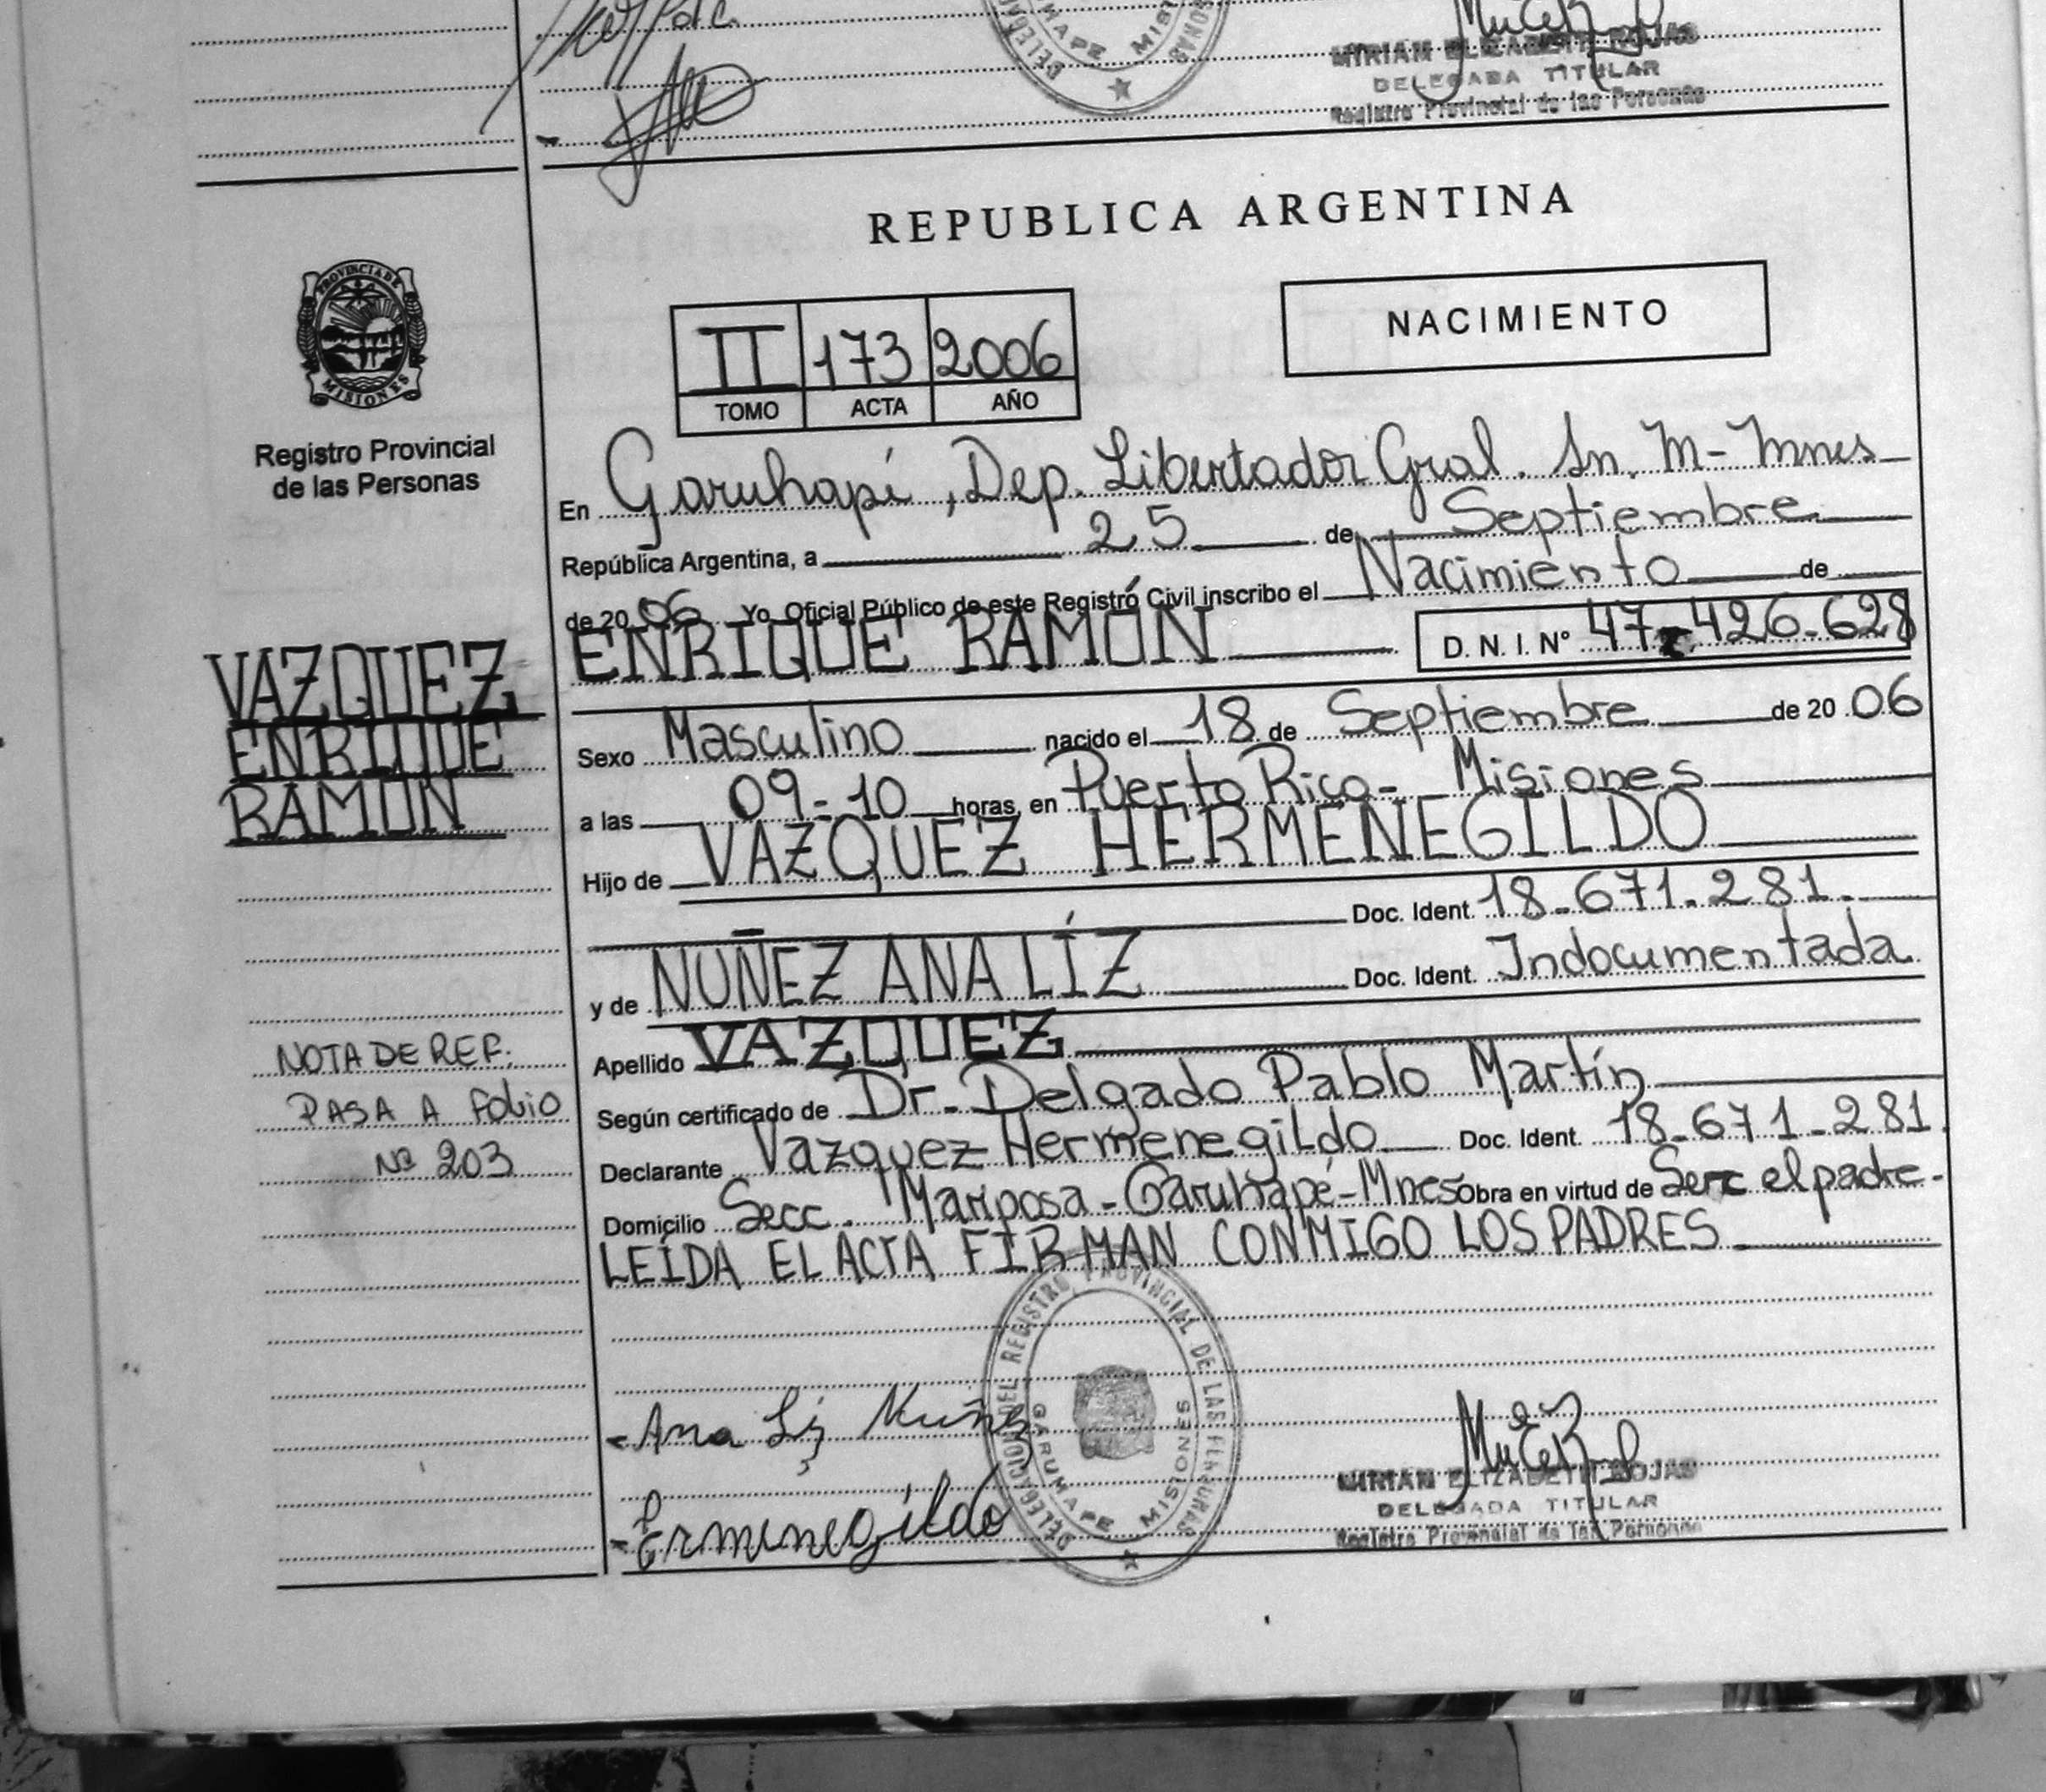 DELEGAB
UHAPE MISI
SONAS
MIRIAM ELIZABETH ROJAS
DELEGADA TITULAR
Registro Provincial de las Personas
REPUBLICA ARGENTINA
PROVINCIA DE
MISIONES
Registro Provincial
de las Personas
II 173 2006
TOMO ACTA AÑO
NACIMIENTO
En Garuhapí, Dep. Libertador Gral. Sn. M- Mnes
República Argentina, a 25 de Septiembre
de 20 06 Yo Oficial Público de este Registro Civil inscribo el Nacimiento de
ENRIQUE RAMON D. N. I. Nº 47-426-628
VAZQUEZ
ENRIQUE
RAMON
Sexo Masculino nacido el 18 de Septiembre de 20 06
a las 09-10 horas, en Puerto Rico- Misiones
Hijo de VAZQUEZ HERMENEGILDO
Doc. Ident. 18-671-281.
y de NUÑEZ ANA LÍZ Doc. Ident. Indocumentada
Apellido VAZQUEZ
Según certificado de Dr. Delgado Pablo Martín
Declarante Vazquez Hermenegildo Doc. Ident. 18-671-281.
Domicilio Secc. Mariposa-Garuhapé-Mnes Obra en virtud de Ser el padre-
LEÍDA EL ACTA FIRMAN CONMIGO LOS PADRES
NOTA DE REF:
PASA A FOLIO
Nº 203
DELEGACION DEL REGISTRO PROVINCIAL DE LAS PERSONAS
GARUHAPE MISIONES
Ana Liz Nuñez
Ermenegildo
MIRIAN ELIZABETH ROJAS
DELEGADA TITULAR
Registro Provincial de las Personas